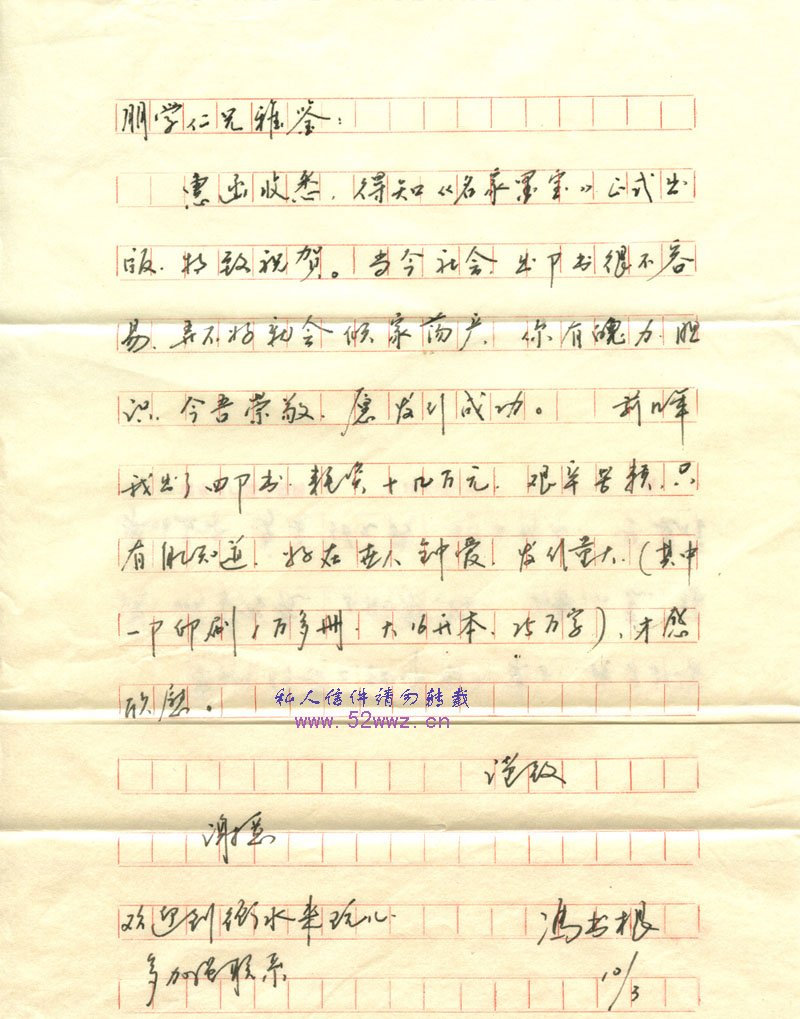 朋学仁兄雅鉴：
惠函收悉，得知《名家墨宝》正式出
版，特致祝贺。当今社会，出部书很不容
易，弄不好就会倾家荡产，你有魄力、胆
识，令吾崇敬，愿发行成功。 前几年
我出了四部书，耗资十几万元，艰辛苦辣，只
有自知道，好在世人钟爱，发行量大，（其中
一部印刷1万多册，大16开本，25万字），才感
欣慰。
私人信件请勿转载
www.52wwz.cn
谨致
谢意
欢迎到衡水来玩儿，
冯书根
多加强联系
10/3